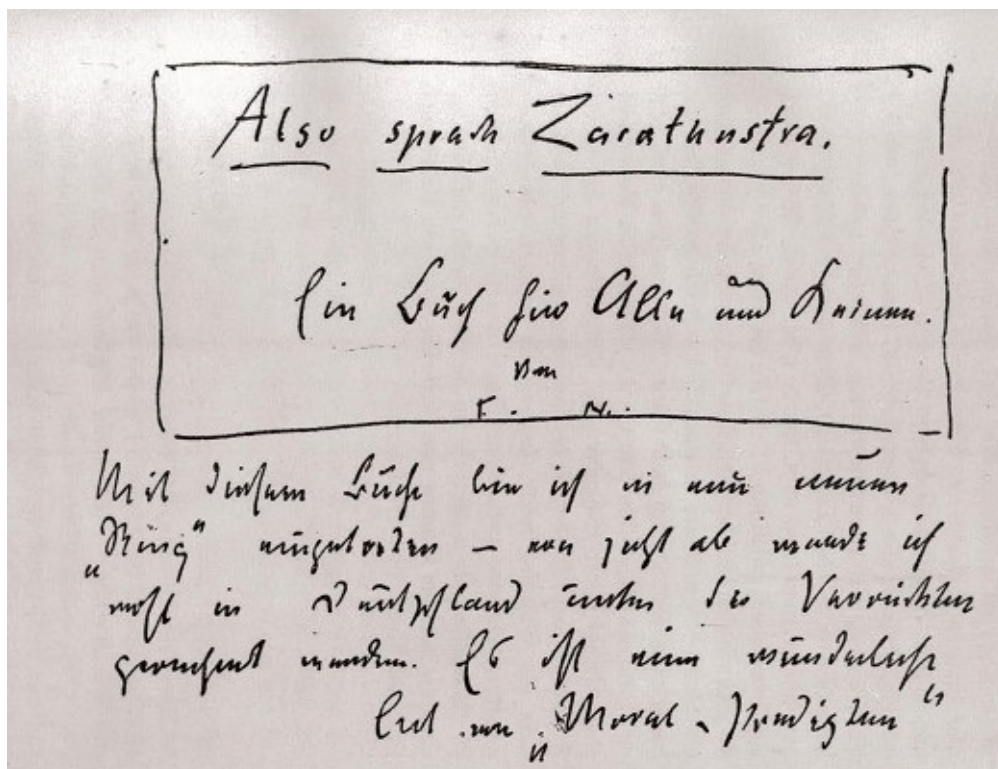 Also sprach Zarathustra.
Ein Buch für Alle und Keinen.
Von
F. N.
Mit diesem Buche bin ich in einen neuen
„Ring“ eingetreten – von jetzt ab werde ich
wohl in Deutschland unter die Verrückten
gerechnet werden. Es ist eine wunderliche
Art von „Moral-Predigten“